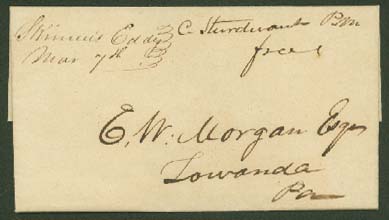 Skinners Eddy
Mar 7th
C. Sturdevant PM
free
E. W. Morgan Esq
Towanda
Pa